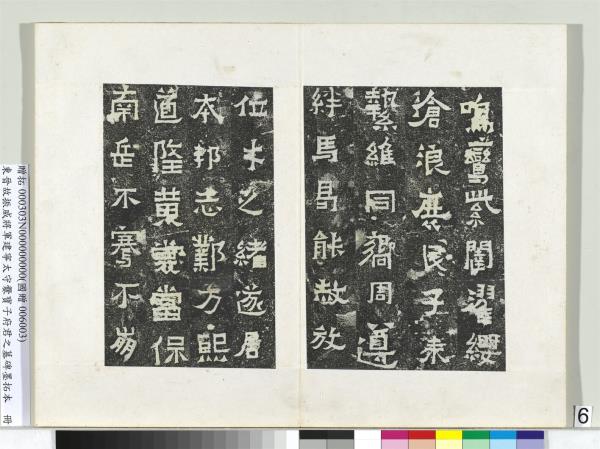 鳴鸞紫闥濯纓
滄浪庶民子來
縶維同嚮周遵
絆馬曷能赦放
位才之緒遂居
本邦志鄴方熙
道隆黃裳當保
南岳不騫不崩
贈拓 000303N000000000(國贈 006003)
東晉故振威將軍建寧太守爨寶子府君之墓碑墨拓本 冊
6